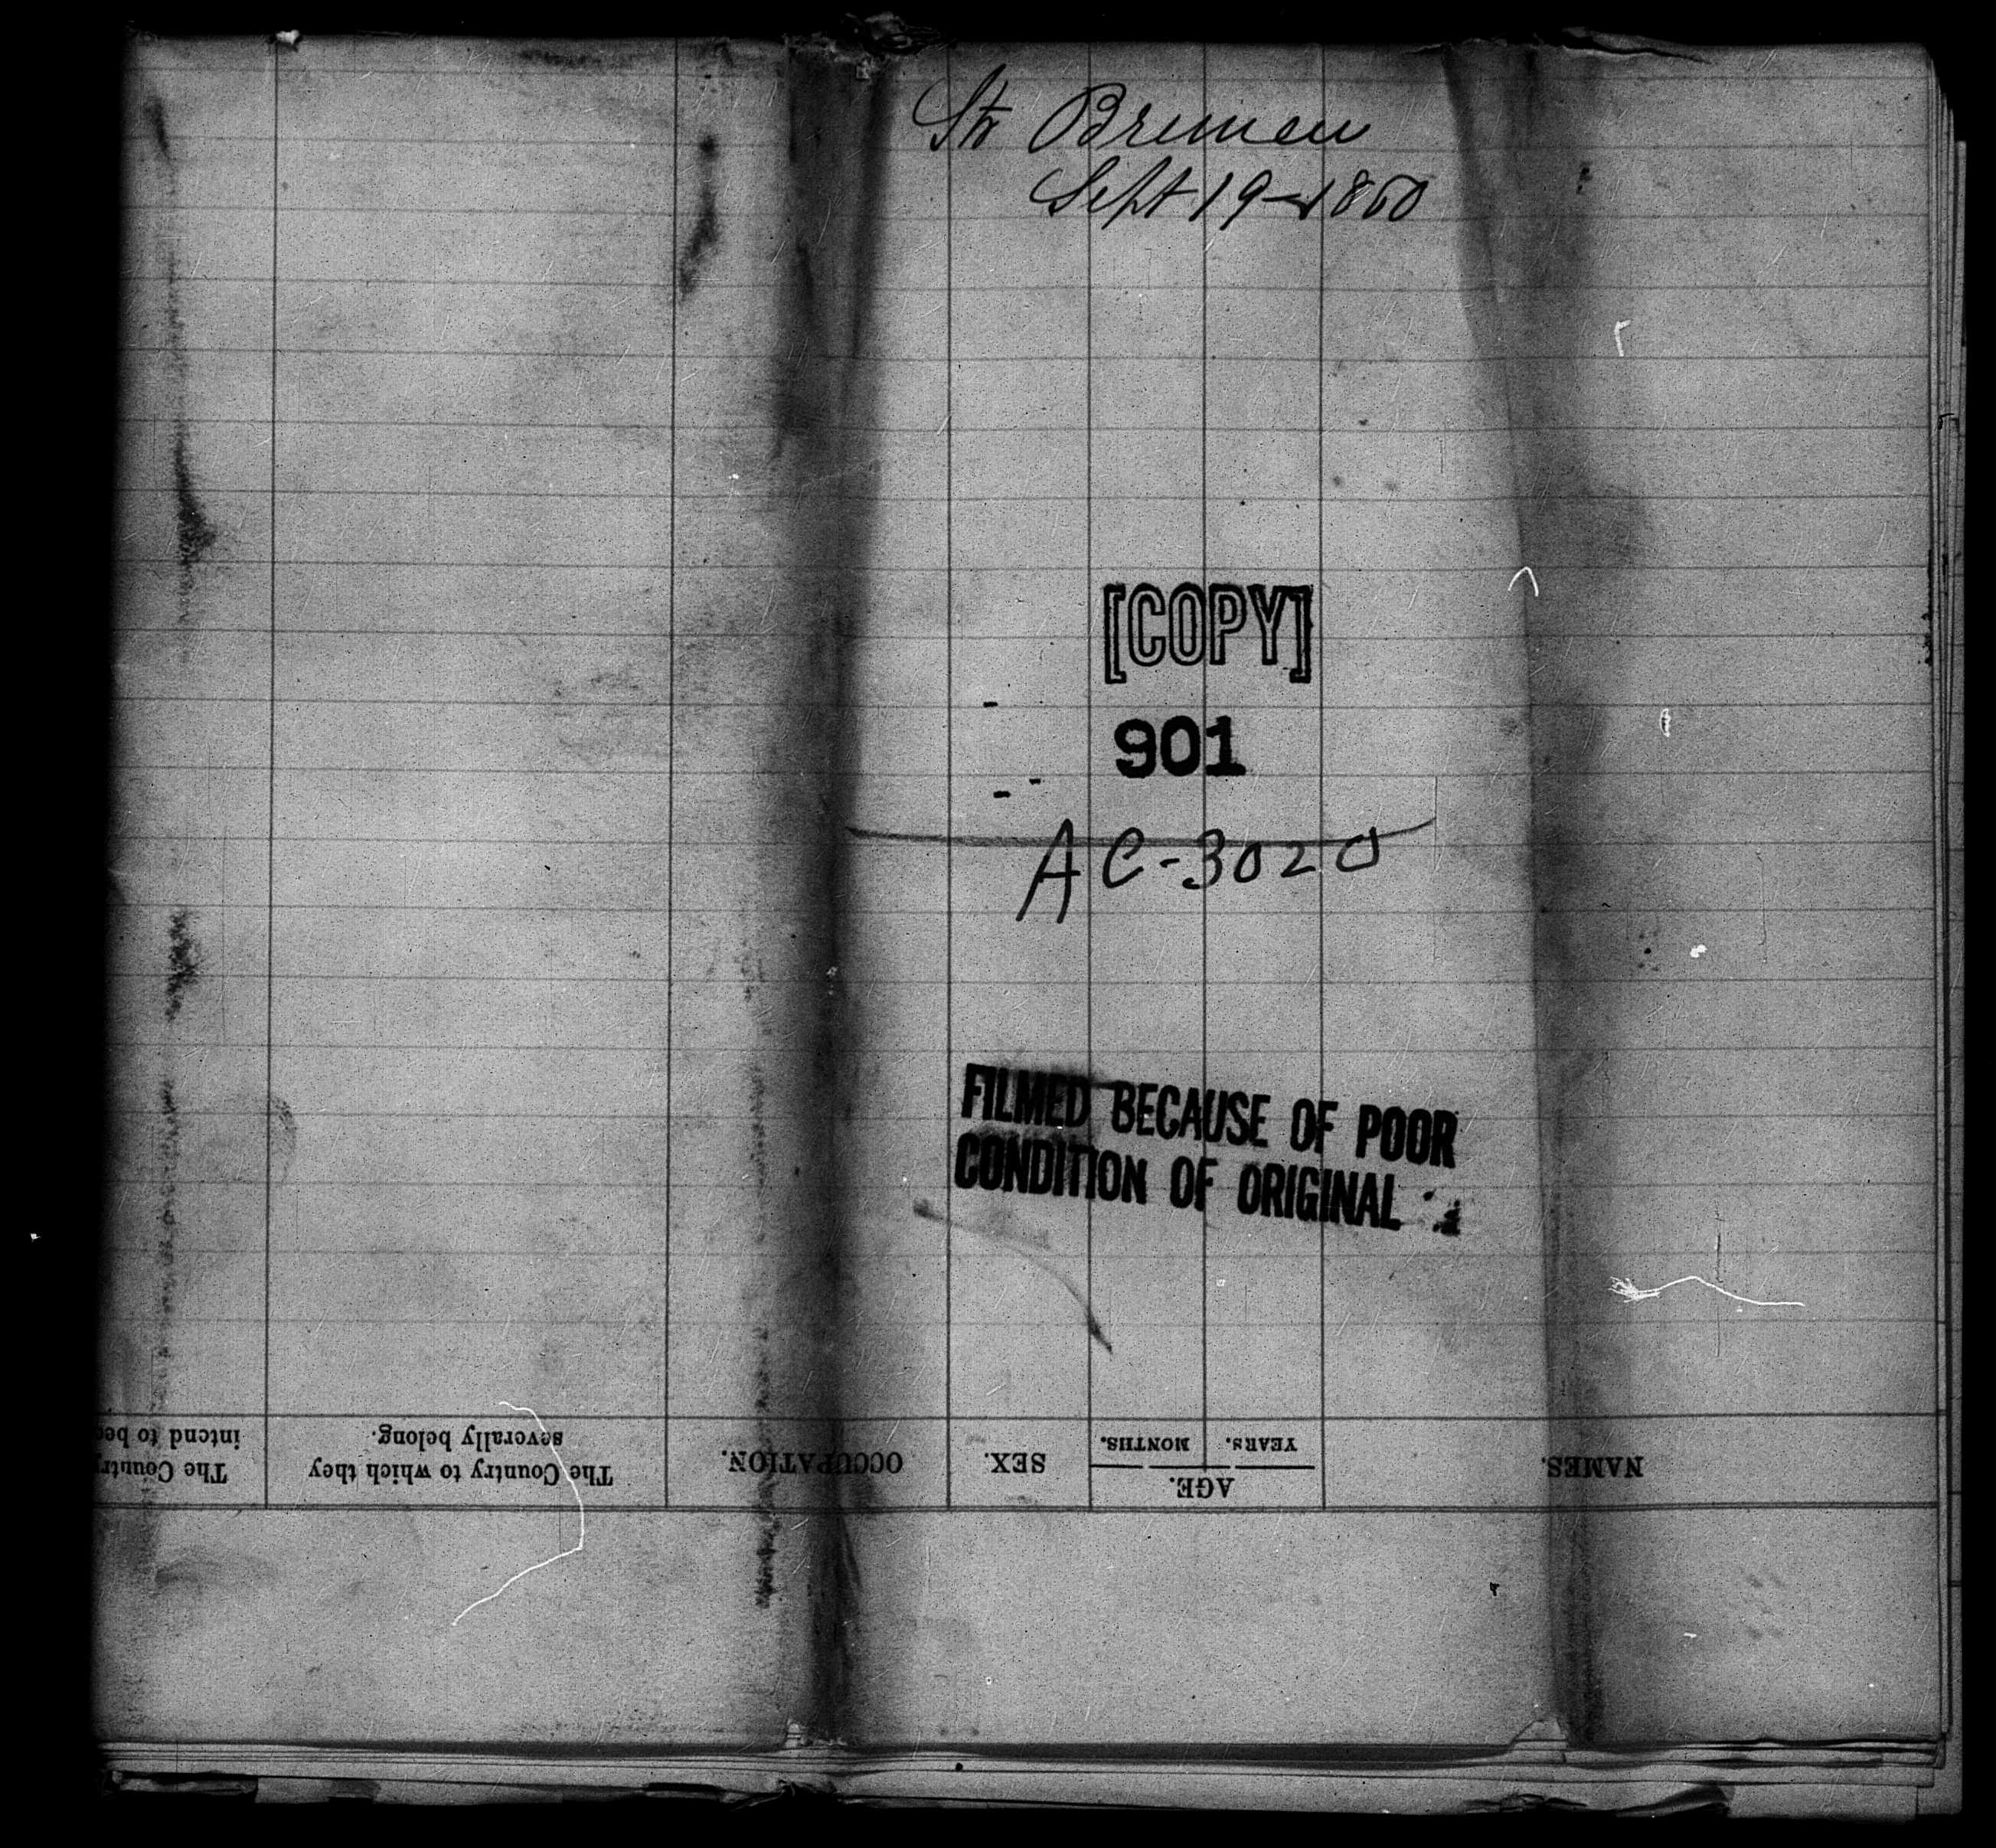 Str Bremen
Sept 19-1860
[COPY]
901
AC-3020
FILMED BECAUSE OF POOR
CONDITION OF ORIGINAL
NAMES.
AGE.
YEARS.
MONTHS.
SEX.
OCCUPATION.
The Country to which they
severally belong.
The Countr
intend to bec